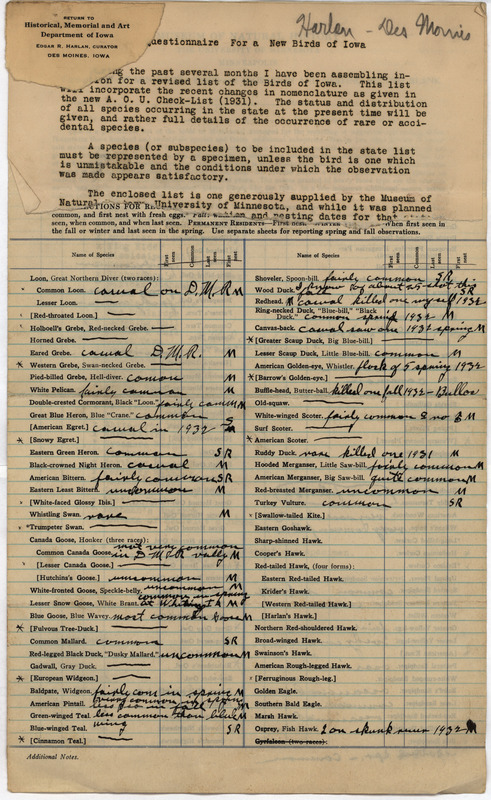 RETURN TO
Historical, Memorial and Art
Department of Iowa
EDGAR R. HARLAN, CURATOR
DES MOINES, IOWA
Harlan - Des Moines
uestionnaire For a New Birds of Iowa
ng the past several months I have been assembling in-
ion for a revised list of the Birds of Iowa. This list
will incorporate the recent changes in nomenclature as given in
the new A. O. U. Check-List (1931). The status and distribution
of all species occurring in the state at the present time will be
given, and rather full details of the occurrence of rare or acci-
dental species.
A species (or subspecies) to be included in the state list
must be represented by a specimen, unless the bird is one which
is unmistakable and the conditions under which the observation
was made appears satisfactory.
The enclosed list is one generously supplied by the Museum of
Natural University of Minnesota, and while it was planned
CTIONS FOR
common, and first nest with fresh eggs. and nesting dates for that
seen, when common, and when last seen. PERMANENT RESIDENTS—First nest. when first seen in
the fall or winter and last seen in the spring. Use separate sheets for reporting spring and fall observations.
Name of Species First seen Common Last seen First nest
Loon, Great Northern Diver (two races):
Common Loon. casual on D.M.R. M
Lesser Loon.
[Red-throated Loon.]
Holboell's Grebe, Red-necked Grebe.
Horned Grebe.
Eared Grebe. casual D.M.R. M
* Western Grebe, Swan-necked Grebe.
Pied-billed Grebe, Hell-diver. comon M
White Pelican. fairly common M
Double-crested Cormorant, Black "Loon." fairly comm M
Great Blue Heron, Blue "Crane." common S
[American Egret.] casual in 1932 M
* [Snowy Egret.]
Eastern Green Heron. common SR
Black-crowned Night Heron. casual M
American Bittern. fairly common SR
Eastern Least Bittern. uncommon M
[White-faced Glossy Ibis.]
Whistling Swan. rare M
*Trumpeter Swan.
Canada Goose, Honker (three races):
Common Canada Goose. most very common
in D.M.R. vally M
[Lesser Canada Goose.]
[Hutchins's Goose.] uncommon M
White-fronted Goose, Speckle-belly. uncommon M
Lesser Snow Goose, White Brant. common in spring
at M
Blue Goose, Blue Wavey. most common Goose M
* [Fulvous Tree-Duck.]
Common Mallard. common SR
Red-legged Black Duck, "Dusky Mallard." uncommon M
Gadwall, Gray Duck.
* [European Widgeon.]
Baldpate, Widgeon. fairly com in spring M
American Pintail. common in spring
less so in fall M
Green-winged Teal. less common than blue M
Blue-winged Teal. wing SR
* [Cinnamon Teal.]
Additional Notes.
Name of Species First seen Common Last seen First nest
Shoveler, Spoon-bill. fairly common SR
Wood Duck. I know of about 25 shot SR
Redhead. M casual killed one myself 1932
Ring-necked Duck, "Blue-bill," "Black
Duck." common spring 1932 M
Canvas-back. casual saw one 1932 spring M
* [Greater Scaup Duck, Big Blue-bill.]
Lesser Scaup Duck, Little Blue-bill. common M
American Golden-eye, Whistler. flock of 5 spring 1932
* [Barrow's Golden-eye.]
Buffle-head, Butter-ball. killed one fall 1932
Old-squaw.
White-winged Scoter. fairly common M
Surf Scoter.
* American Scoter.
Ruddy Duck. rare killed one 1931 M
Hooded Merganser, Little Saw-bill. fairly common M
American Merganser, Big Saw-bill. quite common M
Red-breasted Merganser. uncommon M
Turkey Vulture. common SR
[Swallow-tailed Kite.]
Eastern Goshawk.
Sharp-shinned Hawk.
Cooper's Hawk.
Red-tailed Hawk, (four forms):
Eastern Red-tailed Hawk.
Krider's Hawk.
[Western Red-tailed Hawk.]
[Harlan's Hawk.]
Northern Red-shouldered Hawk.
Broad-winged Hawk.
Swainson's Hawk.
American Rough-legged Hawk.
[Ferruginous Rough-leg.]
Golden Eagle.
Southern Bald Eagle.
Marsh Hawk.
Osprey, Fish Hawk. 2 on skunk river 1932 M
Gyrfalcon (two races).